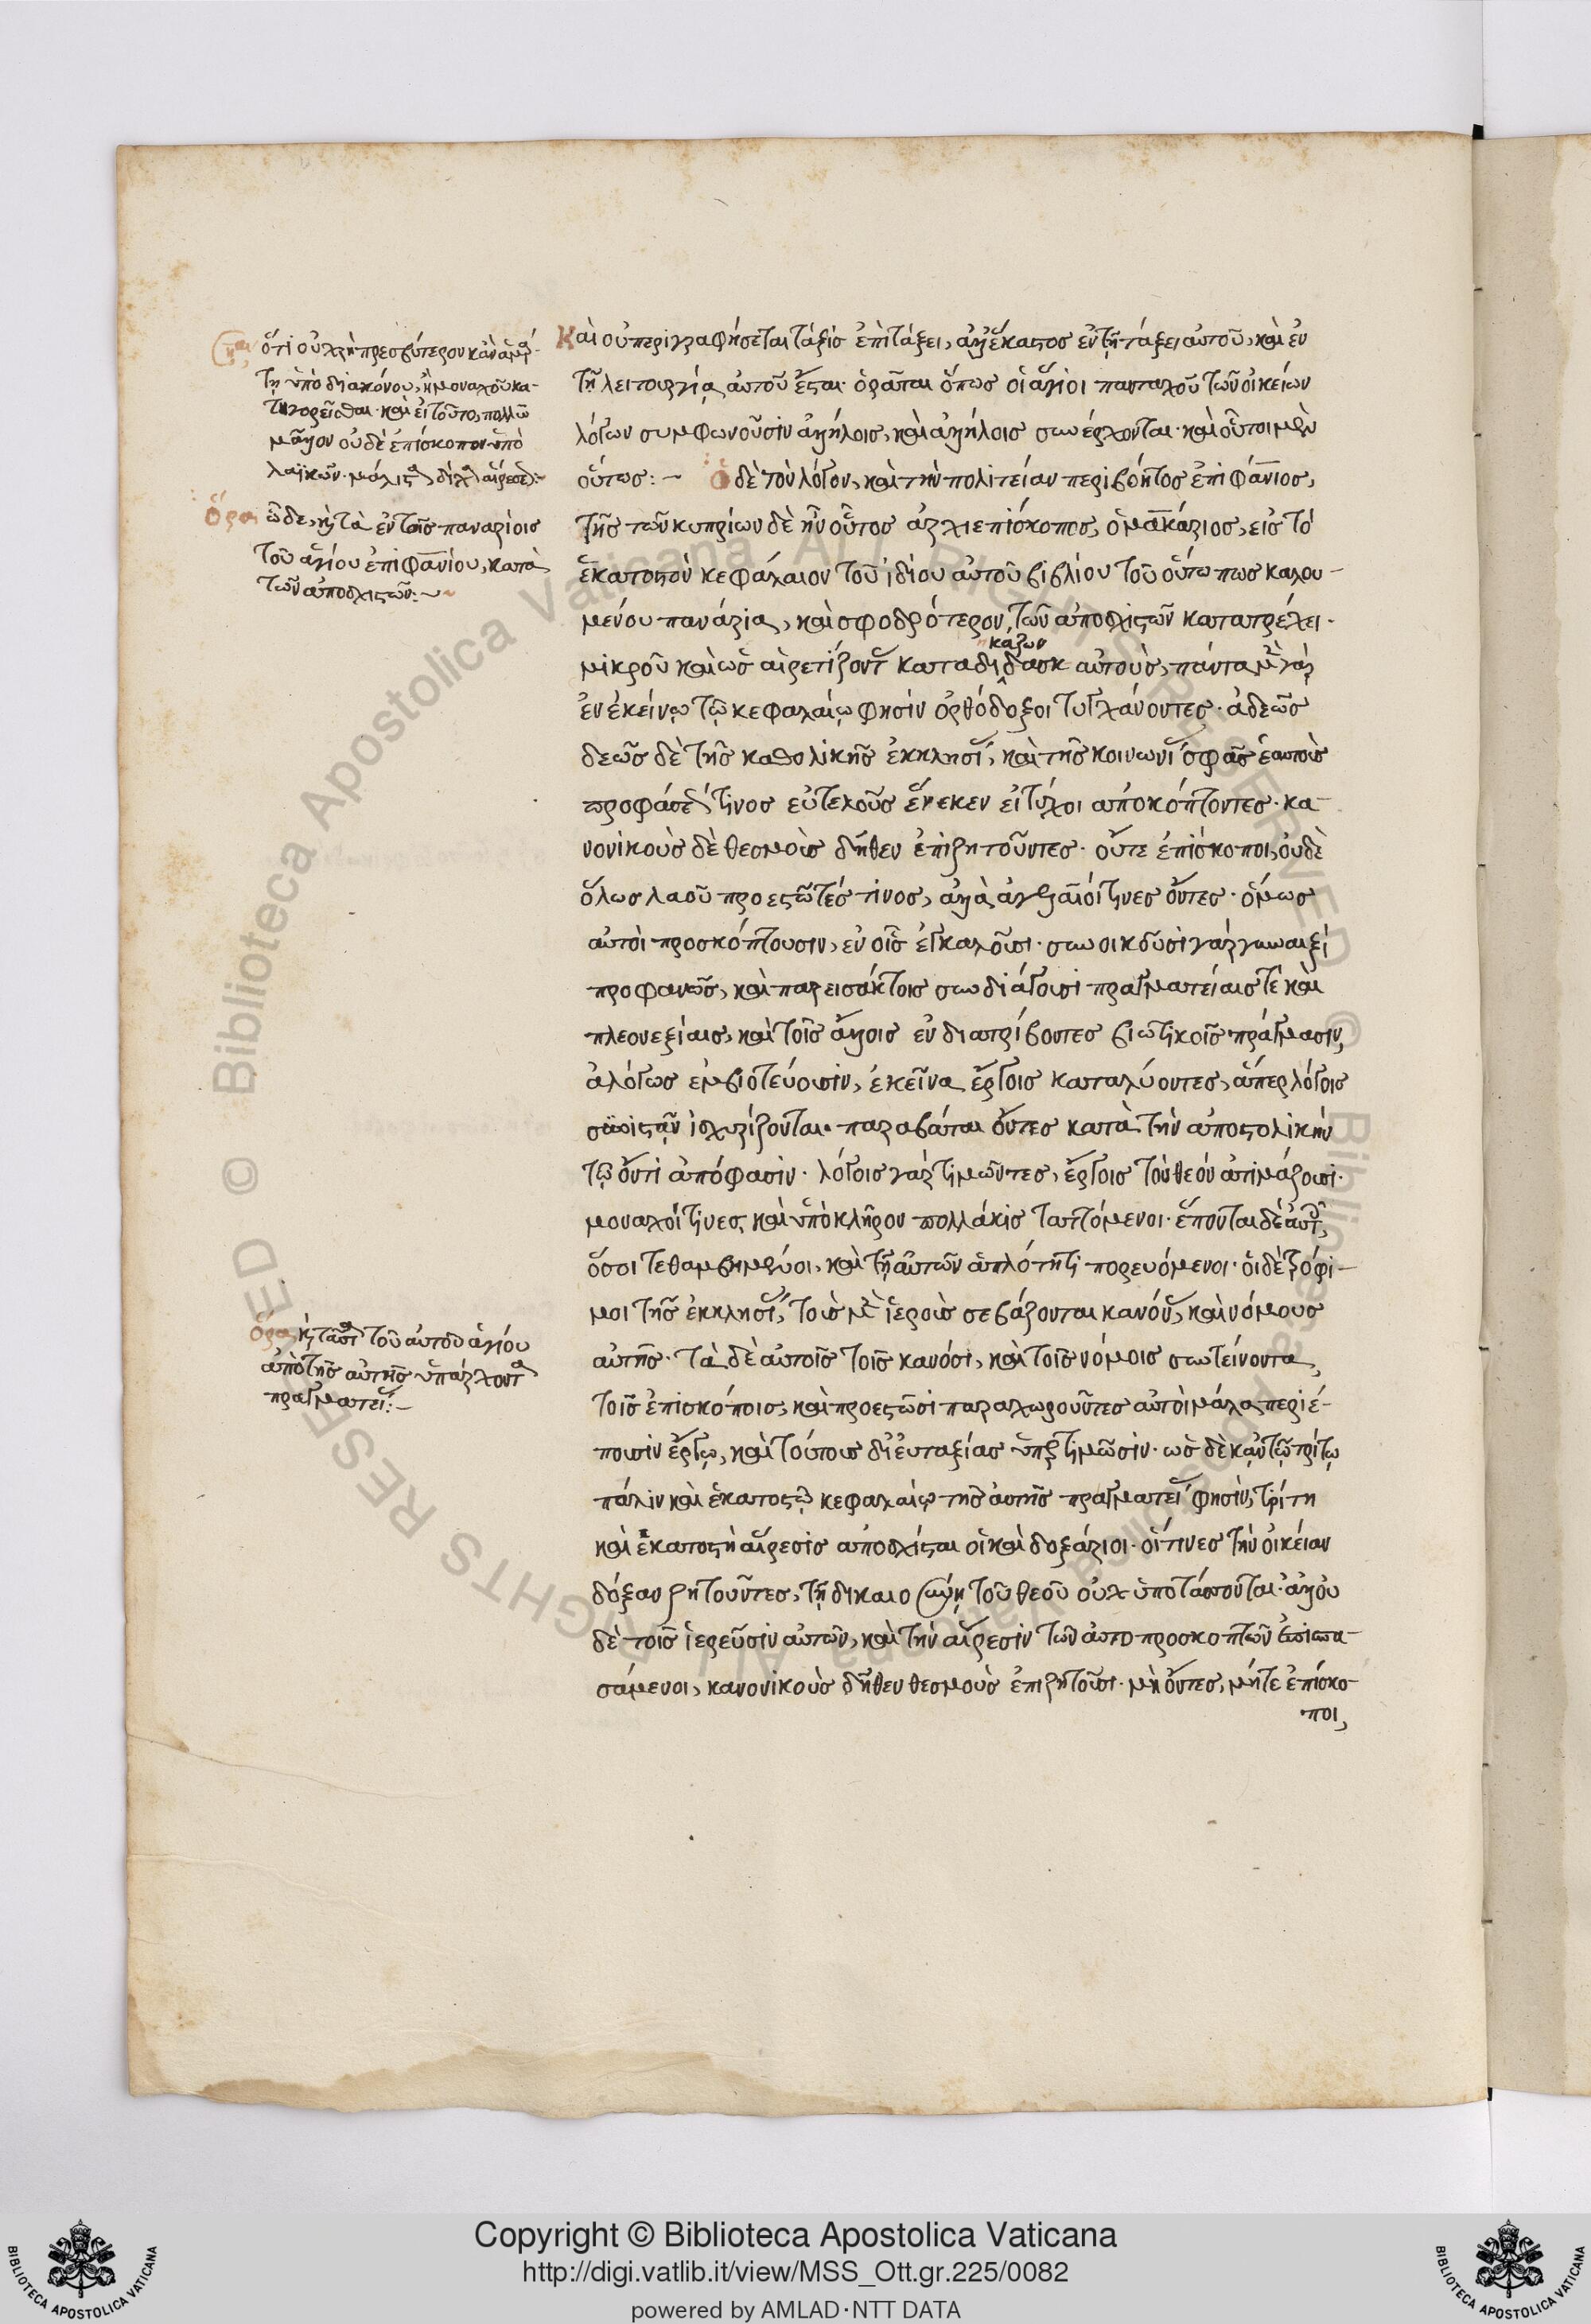 ὅτι οὐ χρὴ πρεσβύτερον κἂν ἁμάρ-
τῃ ὑπὸ διακόνου, ἢ μοναχοῦ κα-
τηγορεῖσθαι· καὶ εἰ τοῦτο, πολλῶ
μᾶλλον οὐδὲ ἐπίσκοπον ὑπὸ
λαϊκῶν· μάλιστα δίχα αἱρέσεως:-
ὅρα ὧδε, κ̀ τὰ ἐν τοῖς παναρίοις
τοῦ ἁγίου ἐπιφανίου, κατὰ
τῶν ἀποσχιστῶν:~
ὅρα κ̀ ταῦτα τοῦ αὐτοῦ ἁγίου
ἀπὸ τῆς αὐτῆς ὑπάρχοντα
πραγματείας:-
Καὶ οὐ περιγραφήσεται τάξις ἐπὶ τάξει, ἀλλ' ἕκαστος ἐν τῇ τάξει αὐτοῦ, καὶ ἐν
τῇ λειτουργίᾳ αὐτοῦ ἔσται· ὁρᾶται ὅπως οἱ ἅγιοι πανταχοῦ τῶν οἰκείων
λόγων συμφωνοῦσιν ἀλλήλοις, καὶ ἀλλήλοις συνέρχονται· καὶ οὗτοι μὲν
οὕτως:- ὁ δὲ τὸν λόγον, καὶ τὴν πολιτείαν περιβόητος ἐπιφάνιος,
τῆς τῶν κυπρίων δὲ ἦν οὗτος ἀρχιεπίσκοπος, ὁ μακάριος, εἰς τὸ
ἑκατοστὸν κεφάλαιον τοῦ ἰδίου αὐτοῦ βιβλίου τοῦ οὕτω πως καλου-
μένου πανάρια, καὶ σφοδρότερον τῶν ἀποσχιστῶν κατατρέχει·
μικροῦ καὶ ὡς αἱρετίζοντας καταδικάζων αὐτοὺς, πάντα μὲν γὰρ
ἐν ἐκείνῳ τῷ κεφαλαίῳ φησὶν ὀρθόδοξοι τυγχάνοντες· ἀδεῶς
δεῶς δὲ τῆς καθολικῆς ἐκκλησίας, καὶ τῆς κοινωνίας σφᾶς ἑαυτοὺς
προφάσεώς τινος εὐτελοῦς ἕνεκεν εἰ τύχοι ἀποκόπτοντες· κα-
νονικοὺς δὲ θεσμοὺς δῆθεν ἐπιζητοῦντες· οὔτε ἐπίσκοποι, οὐδὲ
ὅλως λαοῦ προεστῶτές τινος, ἀλλὰ ἀγελαῖοί τινες ὄντες· ὅμως
αὐτοὶ προσκόπτουσιν, ἐν οἷς ἐγκαλοῦσι· συνοικοῦσι γὰρ γυναιξὶ
προφανῶς, καὶ παρεισάκτοις συνδιάγουσι πραγματείαις τὲ καὶ
πλεονεξίαις, καὶ τοῖς ἄλλοις ἐνδιατρίβοντες βιωτικοῖς πράγμασιν,
ἀλόγως ἐμβιοτεύουσιν, ἐκεῖνα ἔργοις καταλύοντες, ἅπερ λόγοις
συνιστᾶν ἰσχυρίζονται· παραβάται ὄντες κατὰ τὴν ἀποστολικὴν
τῷ ὄντι ἀπόφασιν· λόγοις γὰρ τιμῶντες, ἔργοις τὸν θεὸν ἀτιμάζουσι·
μοναχοί τινες καὶ ὑπὸ κλῆρον πολλάκις ταττόμενοι· ἕπονται δὲ αὐτοῖς,
ὅσοι τεθαμβημένοι, καὶ τῇ αὐτῶν ἁπλότητι πορευόμενοι· οἱ δὲ τρόφι-
μοι τῆς ἐκκλησίας, τοὺς μὲν ἱεροὺς σεβάζονται κανόνας, καὶ νόμους
αὐτῆς· τὰ δὲ αὐτοῖς τοῖς κανόσι, καὶ τοῖς νόμοις συντείνοντα,
τοῖς ἐπισκόποις, καὶ προεστῶσι παραχωροῦντες αὐτοὶ μάλα περιέ-
πουσιν ἔργῳ, καὶ τούτους δι' εὐταξίας ὑπερτιμῶσιν· ὡς δὲ κἀν τῷ τρίτῳ
πάλιν καὶ ἑκατοστῷ κεφαλαίῳ τῆς αὐτῆς πραγματείας φησὶν, τρίτη
καὶ ἑκατοστὴ αἵρεσις ἀποσχίσται οἱ καὶ δοξάριοι· οἵτινες τὴν οἰκείαν
δόξαν ζητοῦντες, τῇ δικαιοσύνῃ τοῦ θεοῦ οὐχ ὑποτάσσονται· ἀλλ' οὐ
δὲ τοῖς ἱερεῦσιν αὐτῶν, καὶ τὴν αἵρεσιν τῶν αὐτοπροσκοπτῶν ἐπισπα-
σάμενοι, κανονικοὺς δῆθεν θεσμοὺς ἐπιζητοῦσι· μὴ ὄντες, μήτε ἐπίσκο-
ποι,
Copyright © Biblioteca Apostolica Vaticana
http://digi.vatlib.it/view/MSS_Ott.gr.225/0082
powered by AMLAD·NTT DATA